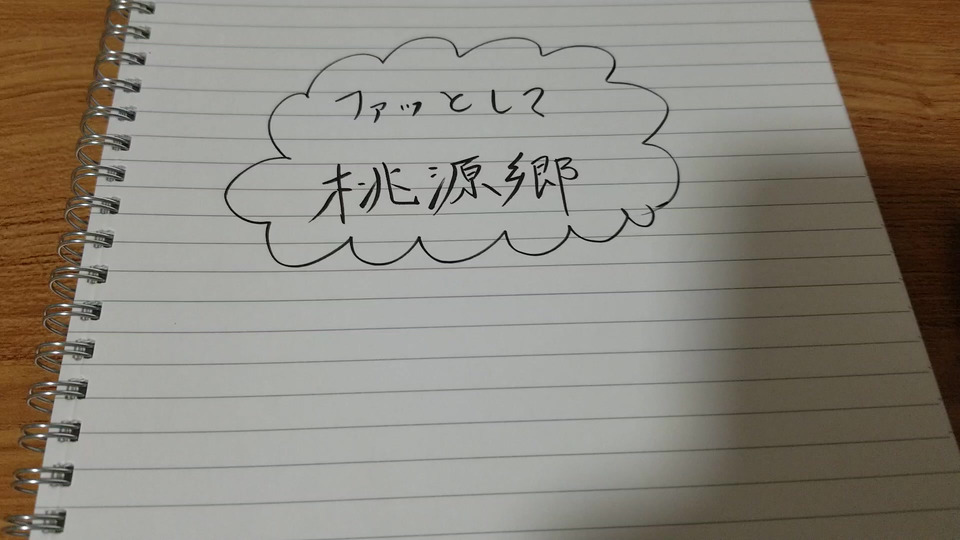 ファッとして
桃源郷